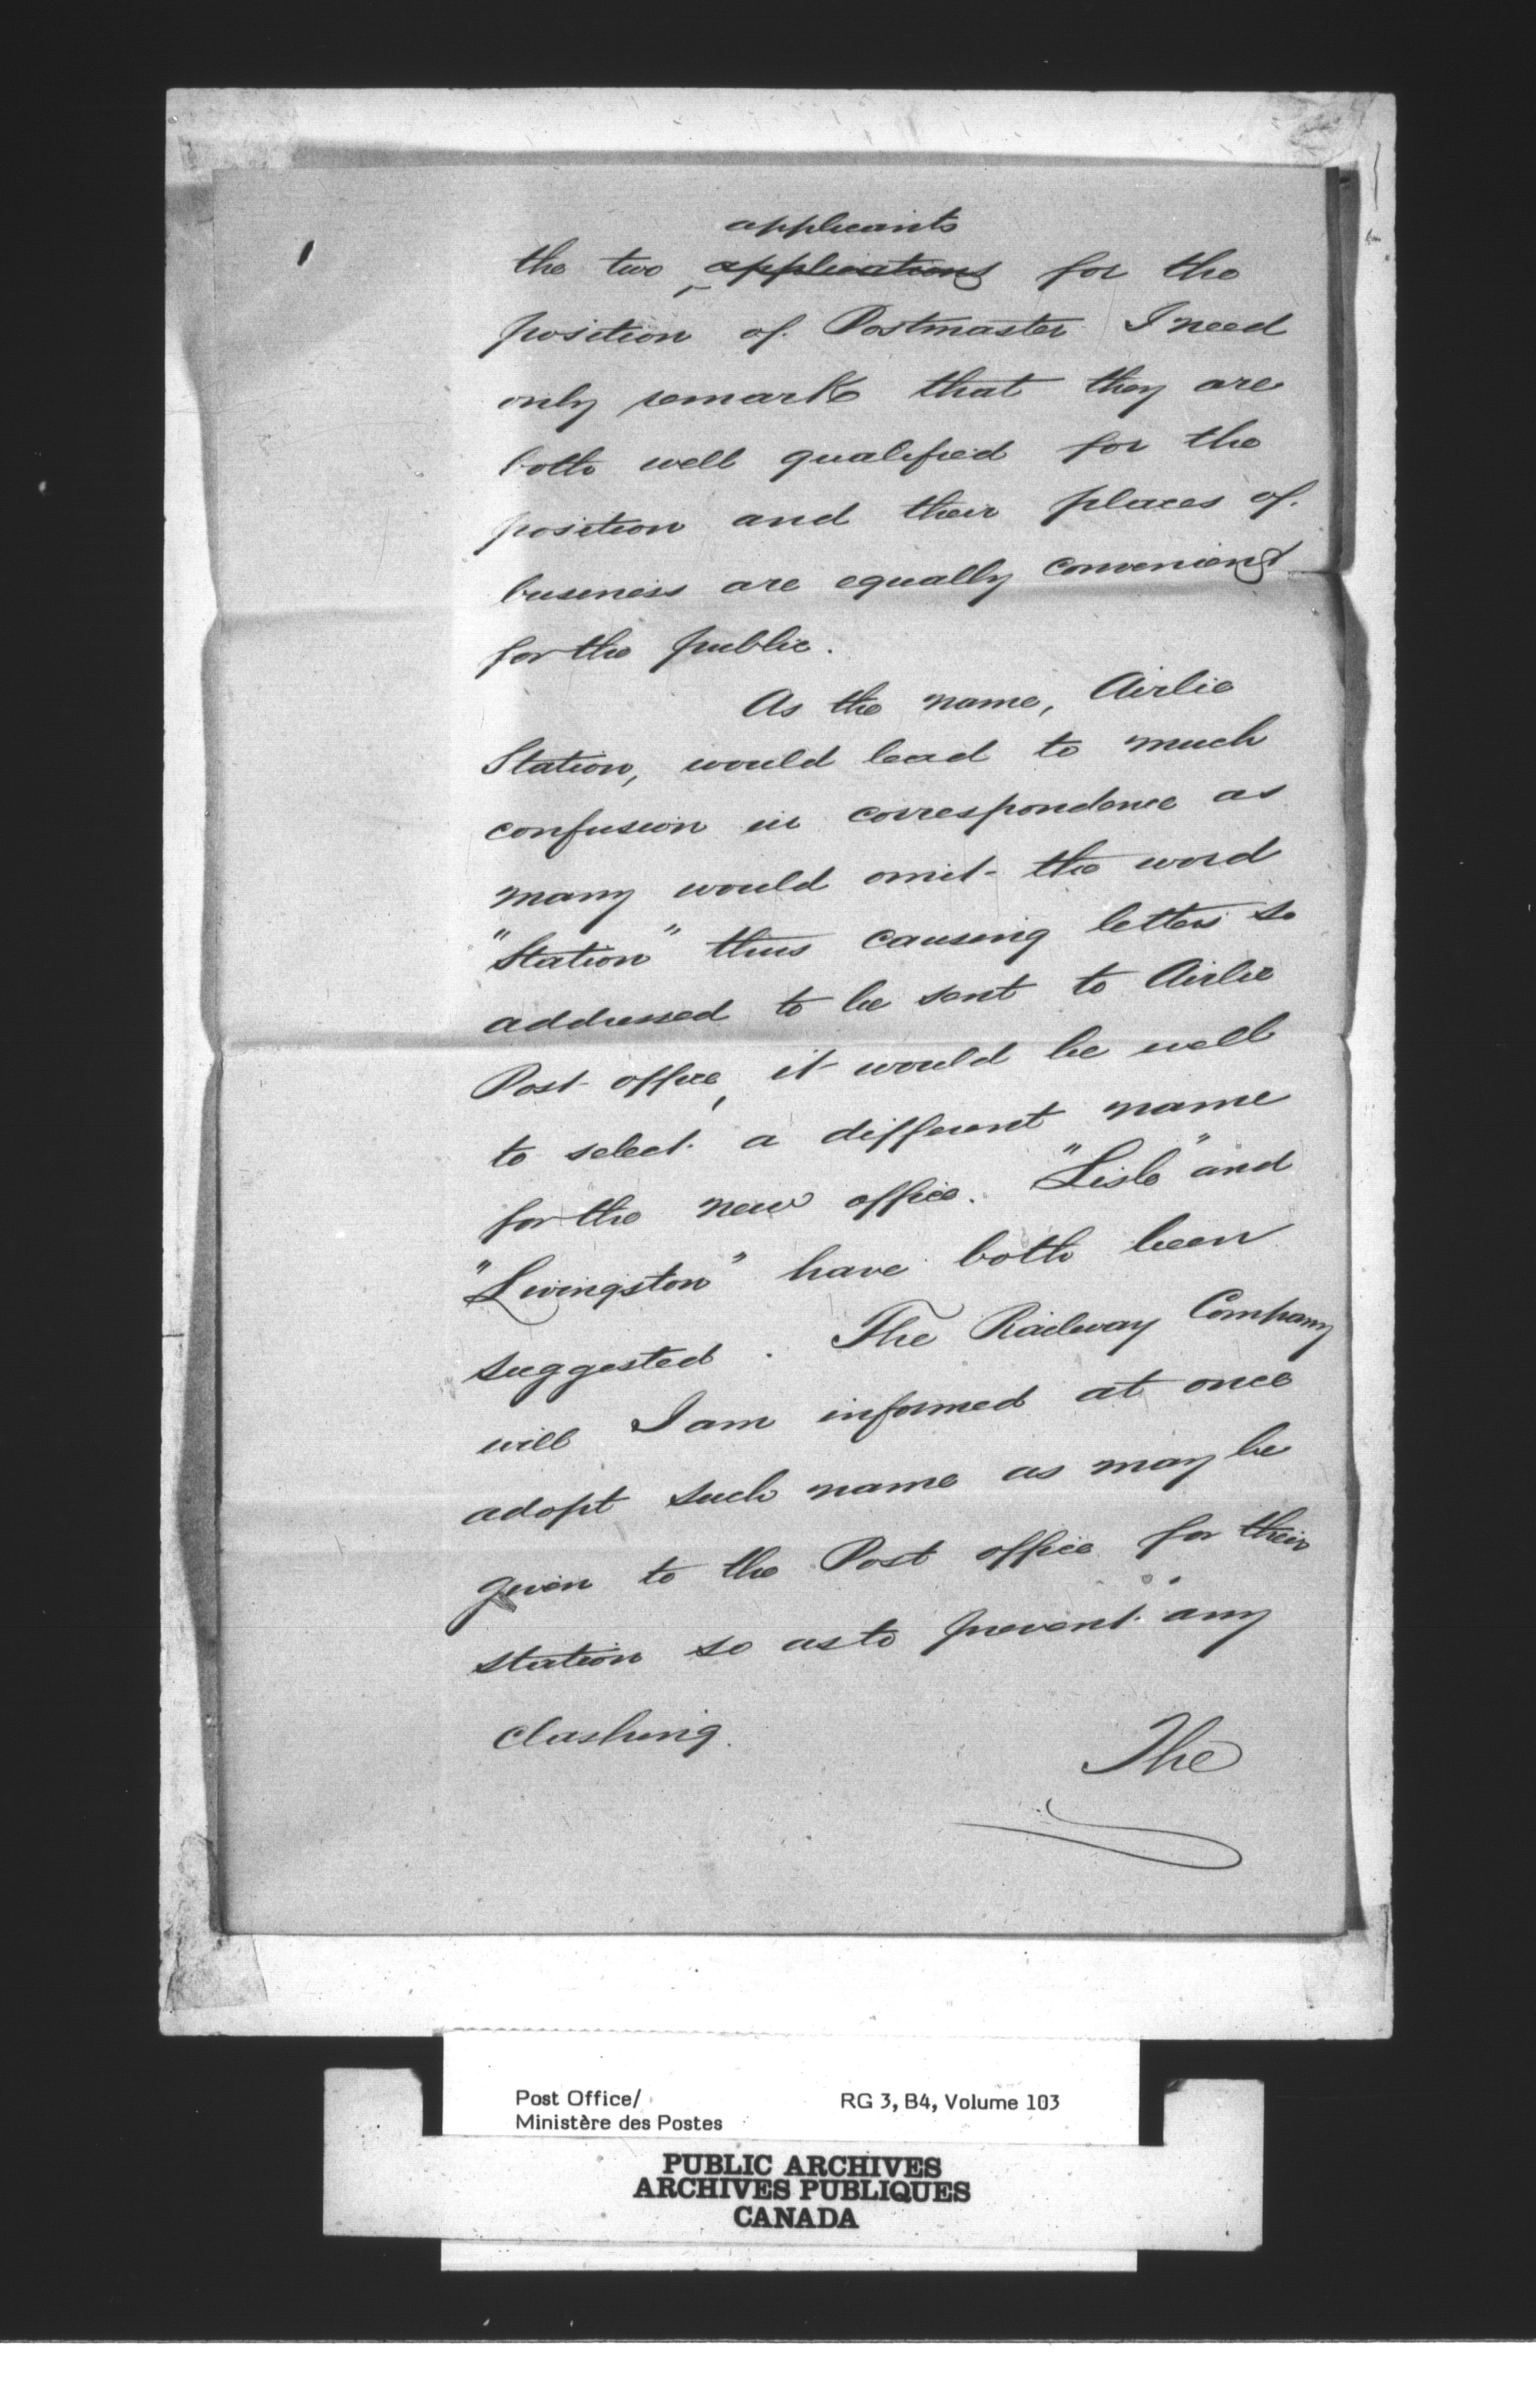 applicants
the two ‸ applications for the
position of Postmaster I need
only remark that they are
both well qualified for the
position and their places of
business are equally convenient
for the public.
As the name, Airlie
Station, would lead to much
confusion in correspondence as
many would omit the word
"Station" thus causing letters so
addressed to be sent to Airlie
Post office, it would be well
to select a different name
for the new office. "Lisle" and
"Livingston" have both been
suggested. The Railway Company
will I am informed at once
adopt such name as may be
given to the Post office for their
station so as to prevent any
clashing.
The
Post Office/
Ministère des Postes
RG 3, B4, Volume 103
PUBLIC ARCHIVES
ARCHIVES PUBLIQUES
CANADA